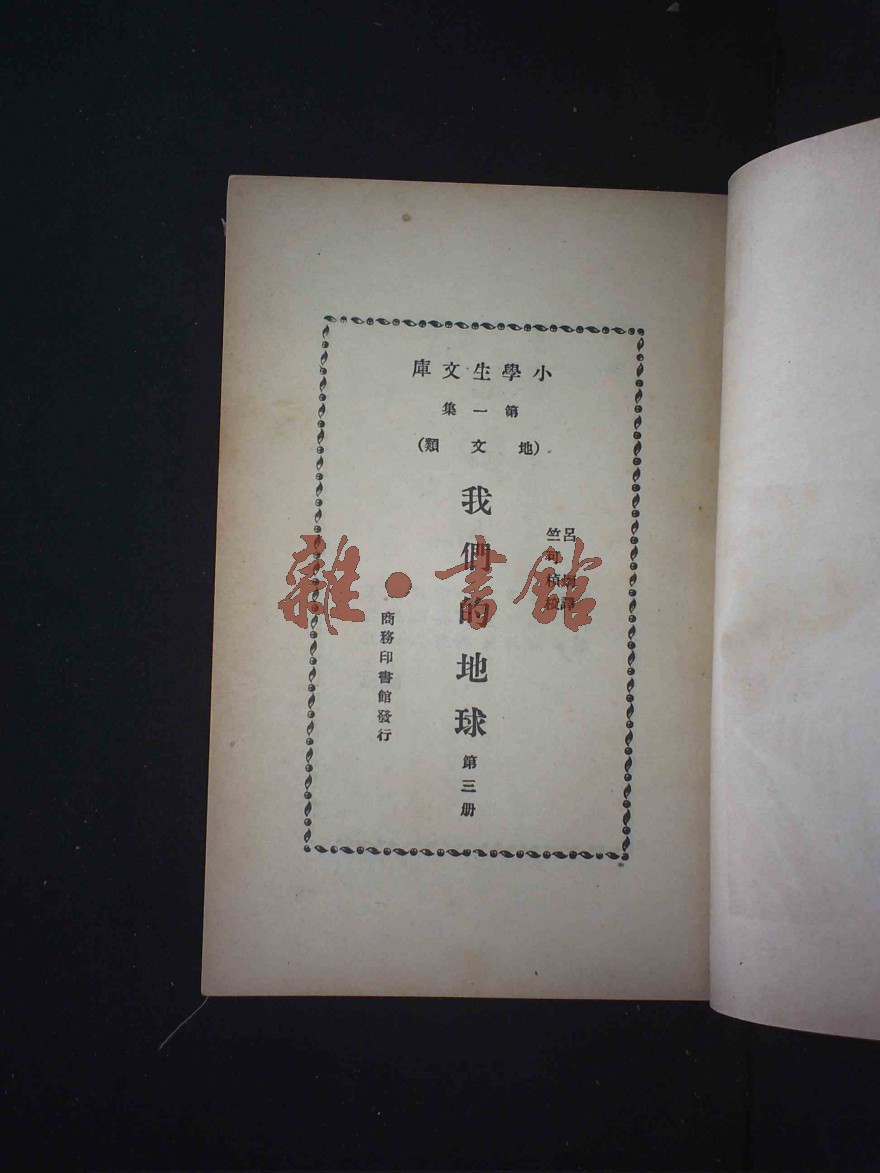 小學生文庫
第一集
(地文類)
呂 譯
竺可楨校
我們的地球 第三册
商務印書館發行
雜·書館